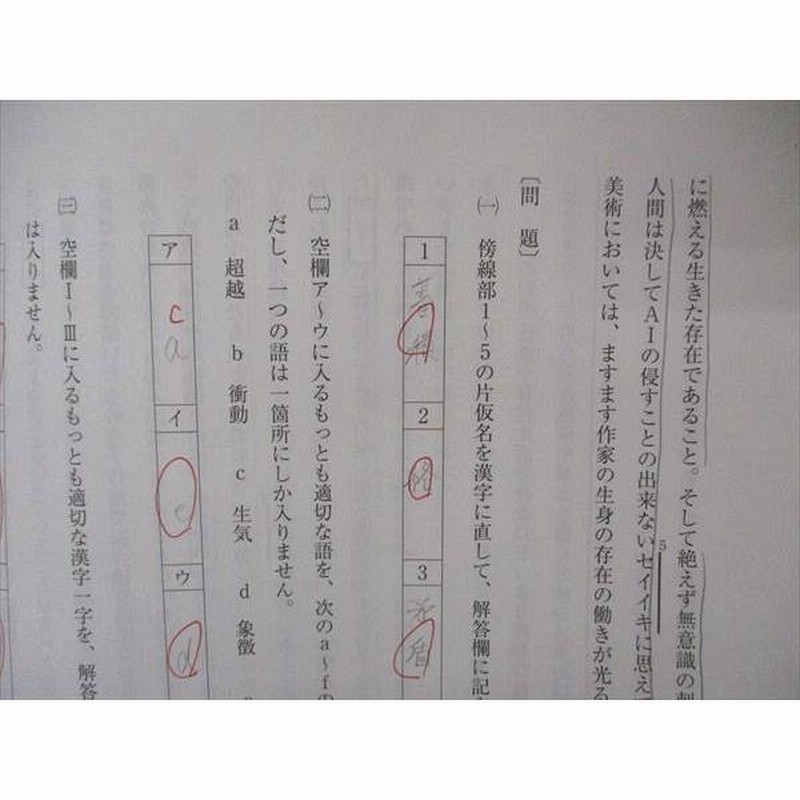 に燃える生きた存在であること。そして絶えず無意識の
人間は決してAIの侵すことの出来ないセイイキに思え
5
美術においては、ますます作家の生身の存在の働きが光る
〔問題〕
㈠ 傍線部1～5の片仮名を漢字に直して、解答欄に記
1
2
3
矛盾
㈡ 空欄ア～ウに入るもっとも適切な語を、次のa～fの
だし、一つの語は一箇所にしか入りません。
a 超越 b 衝動 c 生気 d 象徴
ア c a
イ e
ウ d
㈢ 空欄Ⅰ～Ⅲに入るもっとも適切な漢字一字を、解答
は入りません。